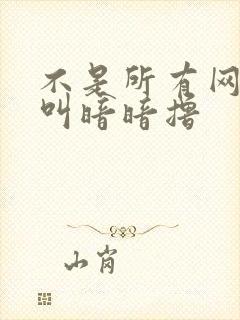 不是所有网
叫暗暗撸
山肖